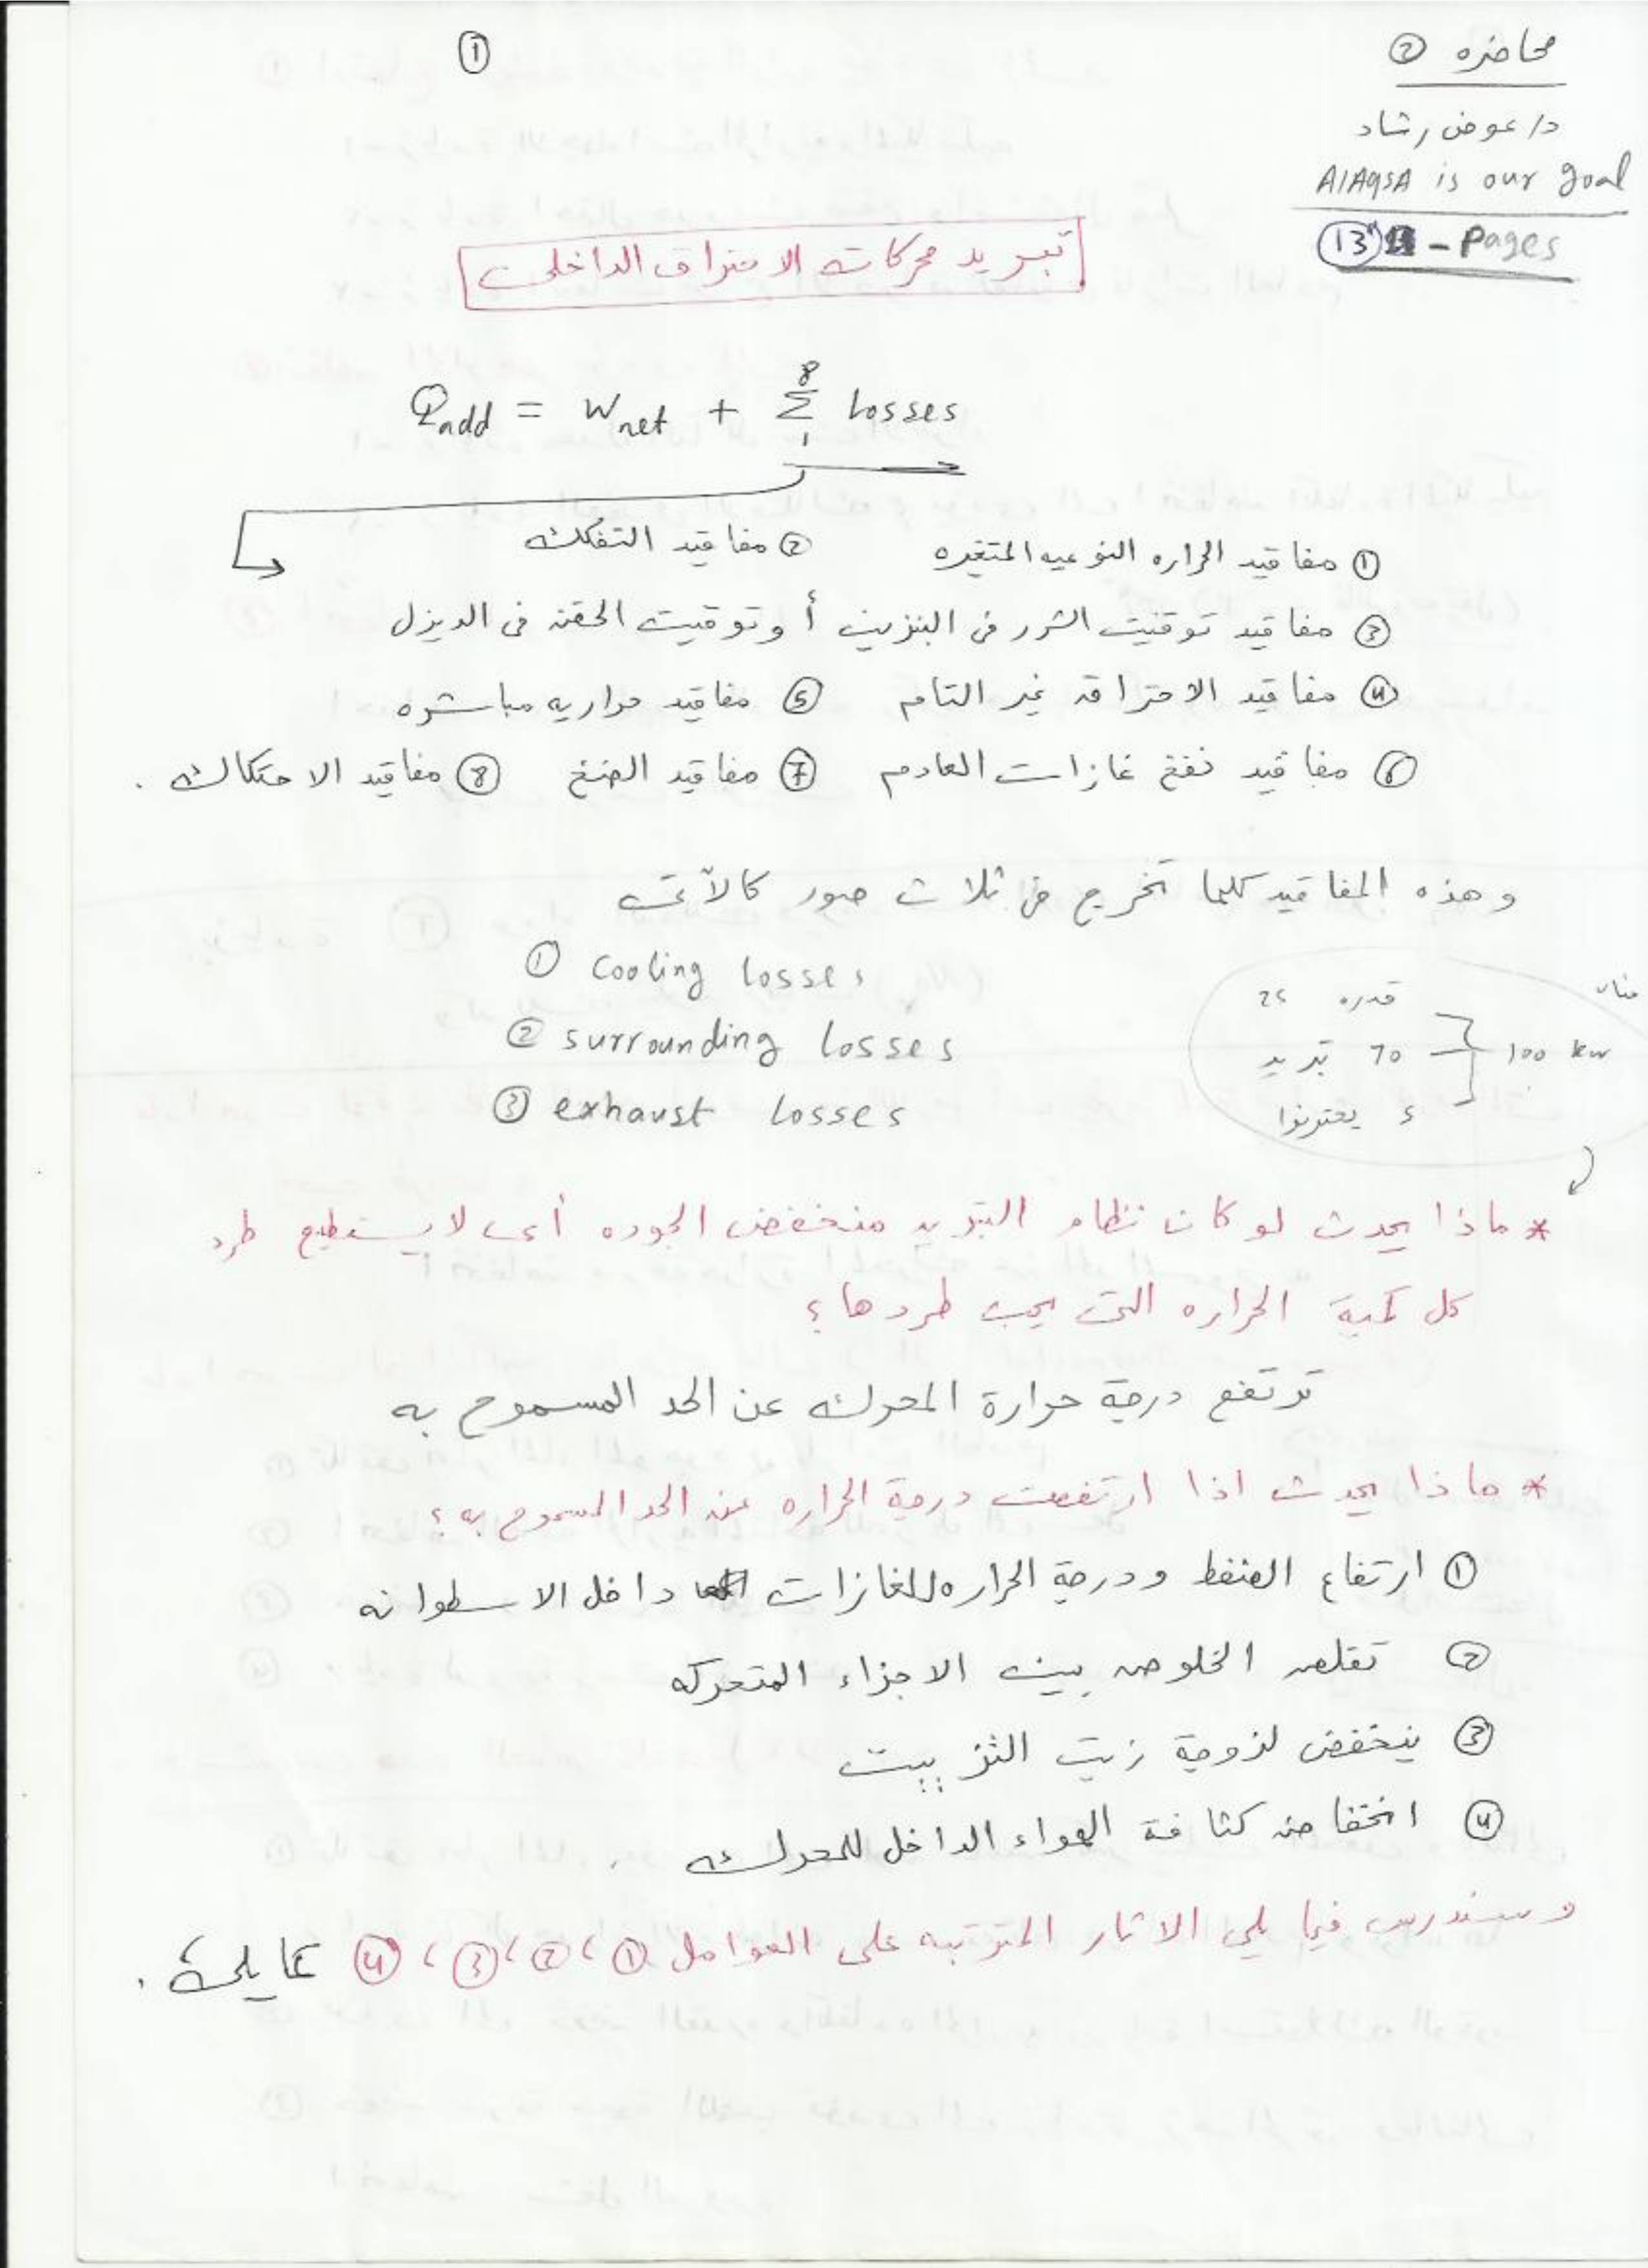 ①
محاضره ②
د/ عوض رشاد
AlAqsA is our goal
⑬ - Pages
تبريد محركات الاحتراق الداخلى
Qadd = Wnet + Σ₁⁸ losses
① مفاقيد الحراره النوعيه المتغيره ② مفاقيد التفكك
③ مفاقيد توقيت الشرر فى البنزين أو توقيت الحقن فى الديزل
④ مفاقيد الاحتراق غير التام ⑤ مفاقيد حراريه مباشره
⑥ مفاقيد نفخ غازات العادم ⑦ مفاقيد الضخ ⑧ مفاقيد الاحتكاك .
وهذه المفاقيد كلها تخرج فى ثلاث صور كالآتى
① cooling losses
② surrounding losses
③ exhaust losses
مثال
100 kw
قدره 25
70 تبريد
5
* ماذا يحدث لو كان نظام التبريد منخفض الجوده أى لا يستطيع طرد
كل كمية الحراره التى يجب طردها؟
ترتفع درجة حرارة المحرك عن الحد المسموح به
* ماذا يحدث اذا ارتفعت درجة الحراره عن الحد المسموح به؟
① ارتفاع الضغط ودرجة الحراره للغازات داخل الاسطوانه
② تقلص الخلوص بين الاجزاء المتحركه
③ ينخفض لزوجة زيت التزييت
④ انخفاض كثافة الهواء الداخل للمحرك .
وسندرس فيما يلي الاثار المترتبه على العوامل ① ، ② ، ③ ، ④ كما يلى .